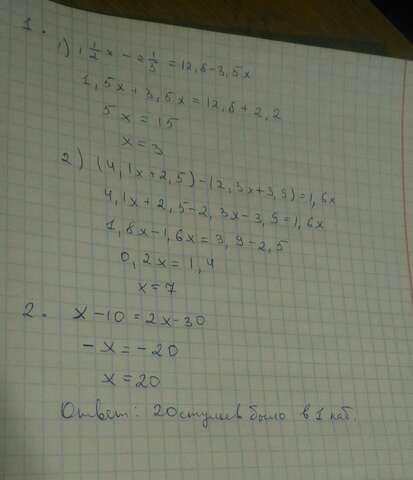 1.
1) 1 1/2 x - 2 1/5 = 12,8 - 3,5x
1,5x + 3,5x = 12,8 + 2,2
5x = 15
x = 3
2) (4,1x + 2,5) - (2,3x + 3,9) = 1,6x
4,1x + 2,5 - 2,3x - 3,9 = 1,6x
1,8x - 1,6x = 3,9 - 2,5
0,2x = 1,4
x = 7
2. x - 10 = 2x - 30
-x = -20
x = 20
Ответ: 20 стульев было в 1 каб.